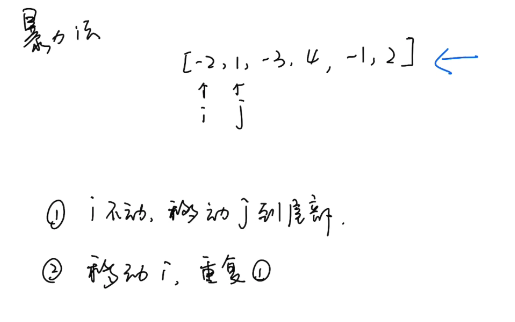 暴力法
[-2, 1, -3, 4, -1, 2]
i j
① i不动, 移动j到尾部.
② 移动i, 重复①